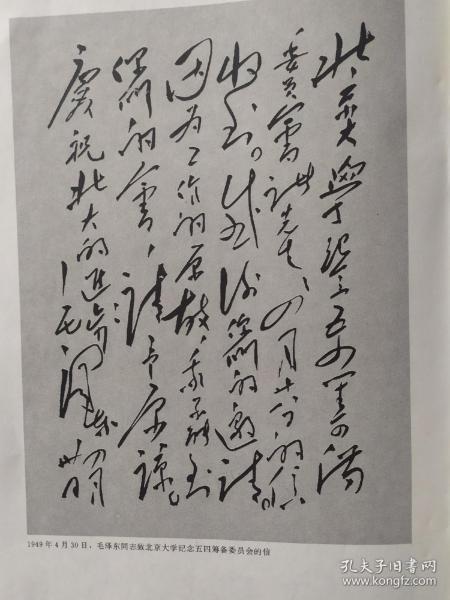 北京大學紀念五四籌備
委员會諸先生:四月廿八日的信
收到。感謝你們的邀請。
因为工作的原故,我不能到
你們的會,請予原諒。
慶祝北大的進步!
毛澤東
四月卅日
1949年4月30日,毛泽东同志致北京大学纪念五四筹备委员会的信
孔夫子旧书网